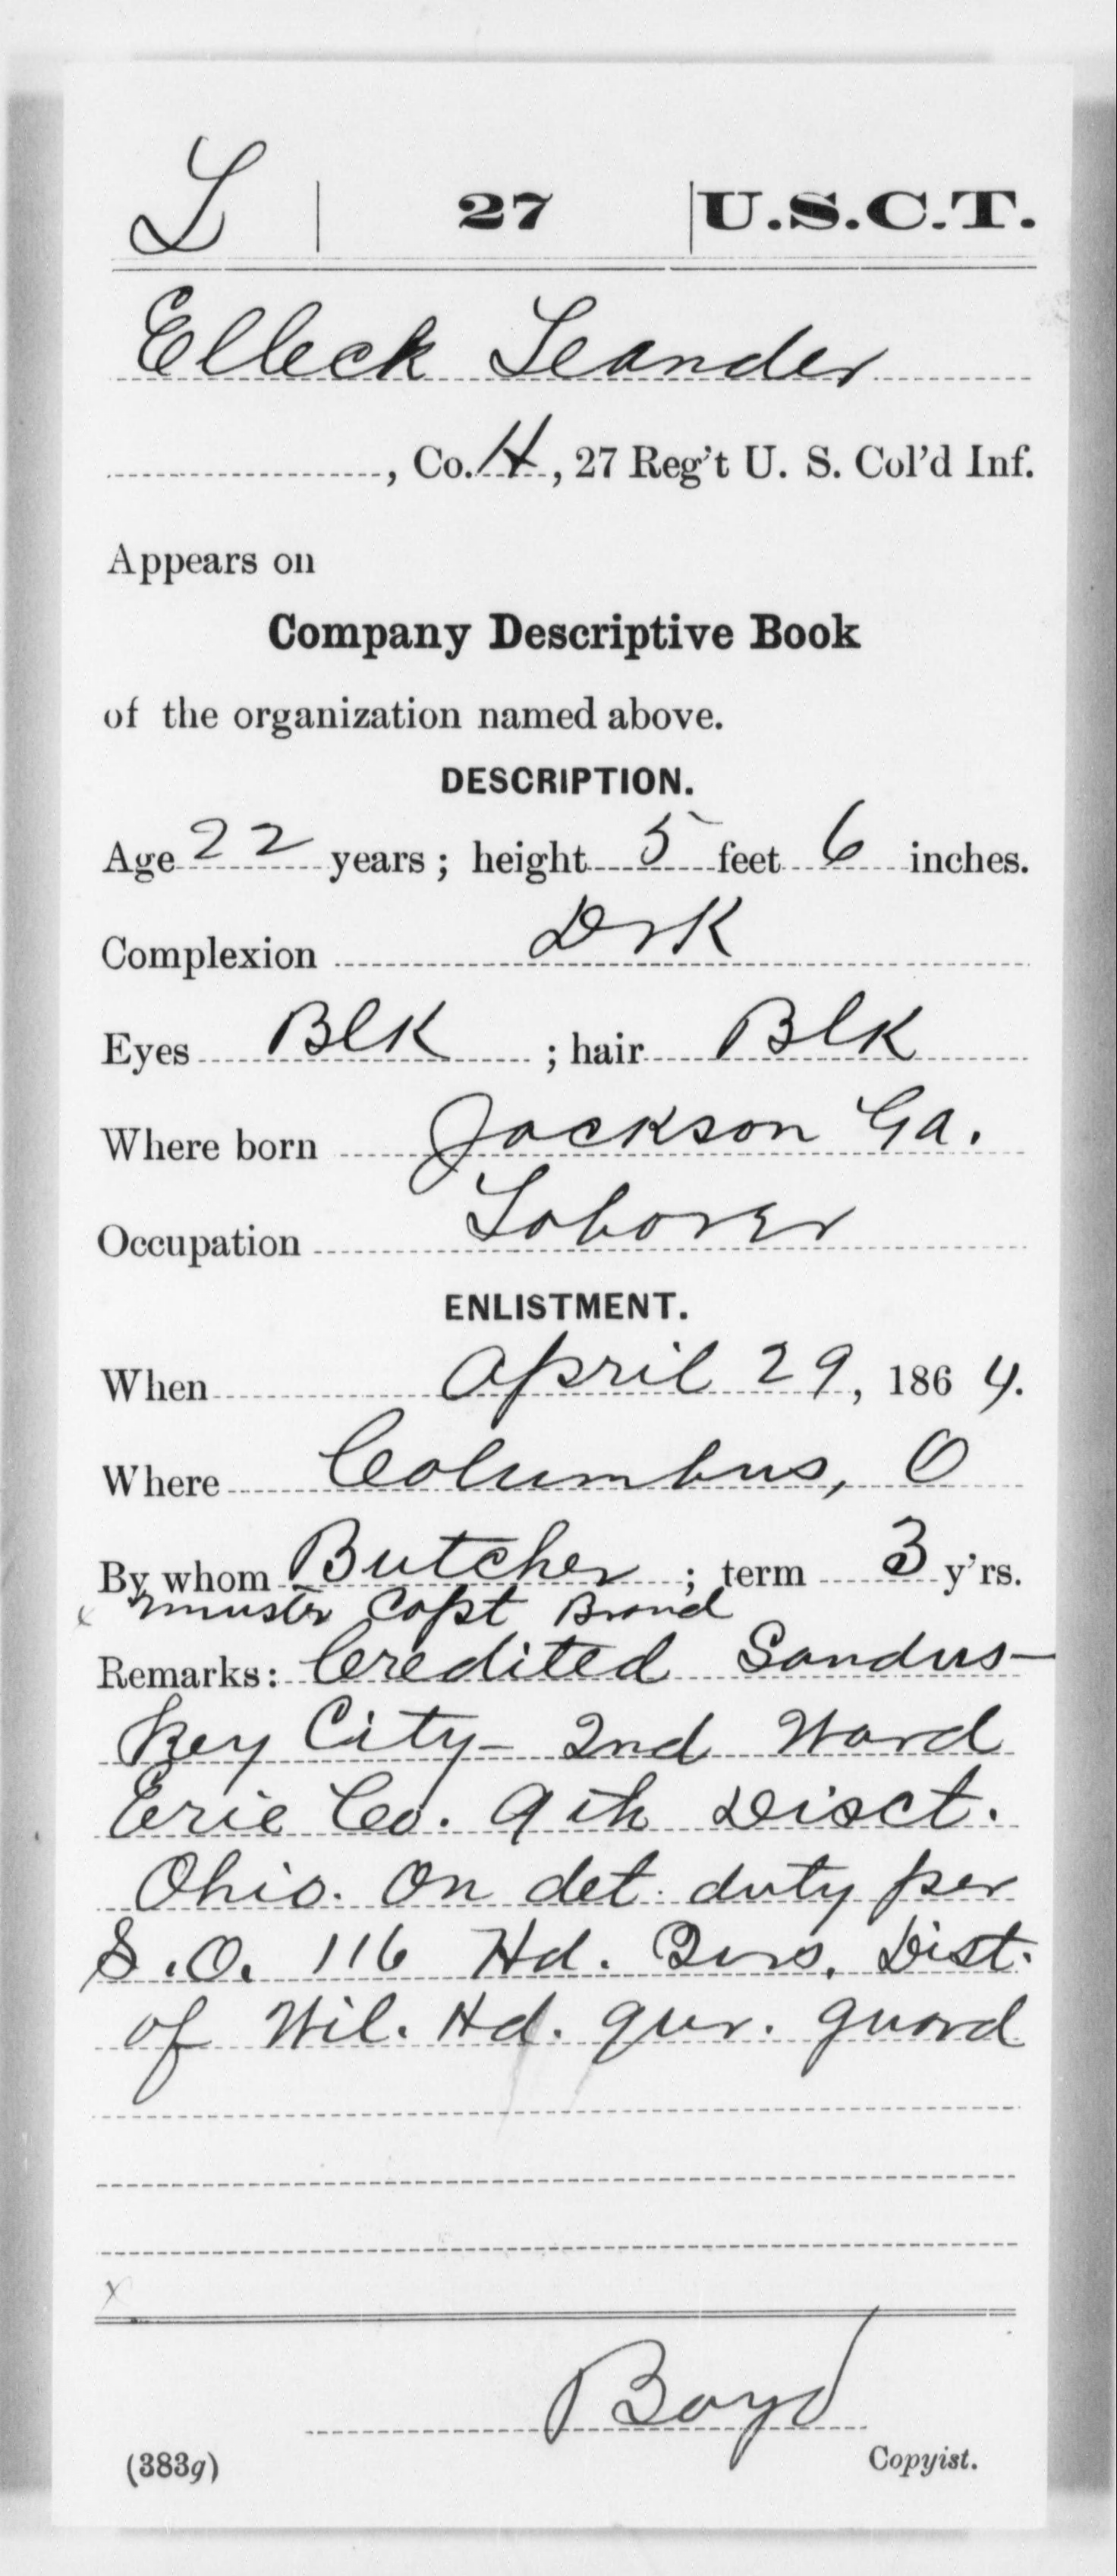 L | 27 | U.S.C.T.
Elleck Leander
, Co. H, 27 Reg't U. S. Col'd Inf.
Appears on
Company Descriptive Book
of the organization named above.
DESCRIPTION.
Age 22 years; height 5 feet 6 inches.
Complexion Drk
Eyes Blk ; hair Blk
Where born Jackson Ga.
Occupation Laborer
ENLISTMENT.
When April 29, 1864.
Where Columbus, O
By whom Butcher ; term 3 y'rs.
x muster Capt Brand
Remarks: Credited Sandus-
key City - 2nd Ward
Erie Co. 9th Disct.
Ohio. On det. duty per
S.O. 116 Hd. Qurs. Dist.
of Wil. Hd. qur. guard
x
Boyd
Copyist.
(383g)